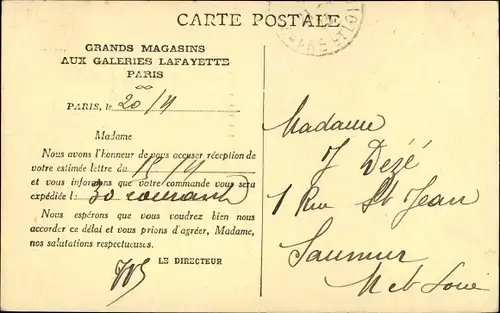 CARTE POSTALE
GRANDS MAGASINS
AUX GALERIES LAFAYETTE
PARIS
PARIS, le 20/4
Madame
Nous avons l'honneur de vous accuser réception de
votre estimée lettre du 15/4
et vous informons que votre commande vous sera
expédiée le 30 courant
Nous espérons que vous voudrez bien nous
accorder ce délai et vous prions d'agréer, Madame,
nos salutations respectueuses.
LE DIRECTEUR
Madame
J Dézé
1 Rue St Jean
Saumur
M et Loire